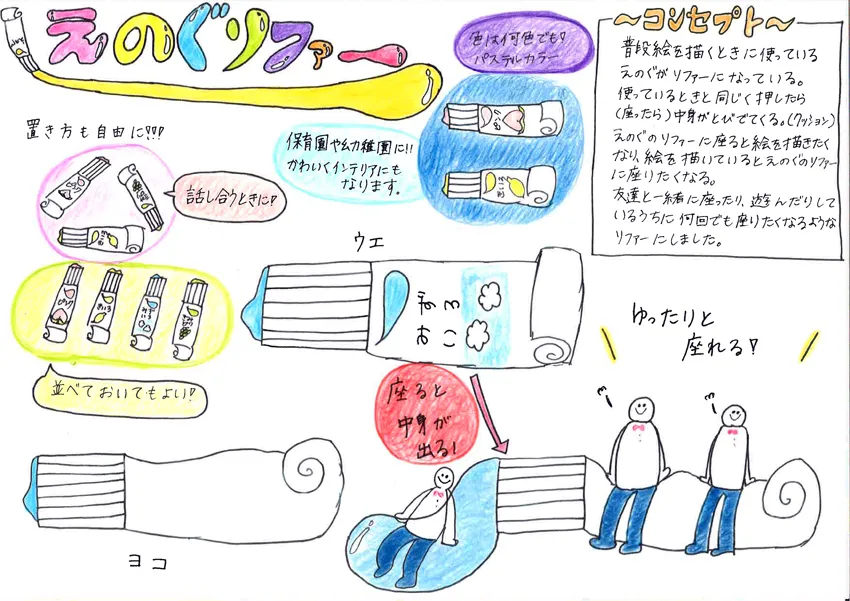 えのぐリファー
色は何色でも!
パステルカラー
～コンセプト～
普段絵を描くときに使っている
えのぐがリファーになっている。
使っているときと同じく押したら
(座ったら)中身がとびでてくる。(クッション)
えのぐのリファーに座ると絵を描きたく
なり、絵を描いているとえのぐのリファー
に座りたくなる。
友達と一緒に座ったり、遊んだりして
いるうちに何回でも座りたくなるような
リファーにしました。
置き方も自由に!!!
保育園や幼稚園に!!
かわいくインテリアにも
なります。
話し合うときに!
ウエ
みずいろ
ゆったりと
座れる?
並べておいてもよい!
座ると
中身が
出る!
ヨコ